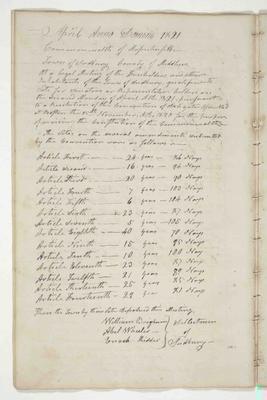 April Anno Domini 1821
Commonwealth of Massachusetts
Town of Sudbury County of Middlesex
At a legal Meeting of the Freeholders and other
Inhabitants of the Town of Sudbury, qualified to
Vote for Senators or Representatives holden on
the Second Monday of April A.D. 1821, pursuant
to a Resolution of the Convention of Delegates assembled
at Boston the November, A.D. 1820 for the purpose
of revising the Constitution of the Commonwealth
The Votes on the several amendments submitted
by the Convention were as follows
Article First — 24 yeas — 94 Nays
Article Second — 16 yeas — 94 Nays
Article Third — 20 yeas — 90 Nays
Article Fourth — 7 yeas — 103 Nays
Article Fifth — 6 yeas — 104 Nays
Article Sixth — 23 yeas — 87 Nays
Article Seventh — 5 yeas — 105 Nays
Article Eighth — 40 yeas — 70 Nays
Article Ninth — 15 yeas — 95 Nays
Article Tenth — 10 yeas — 100 Nays
Article Eleventh — 23 yeas — 87 Nays
Article Twelfth — 21 yeas — Nays
Article Thirteenth — 25 yeas — 85 Nays
Article Fourteenth — 29 yeas — 81 Nays
Then the Town by Vote this Meeting
William
Abel Wheeler
Enoch Kidder
Selectmen
of
Sudbury